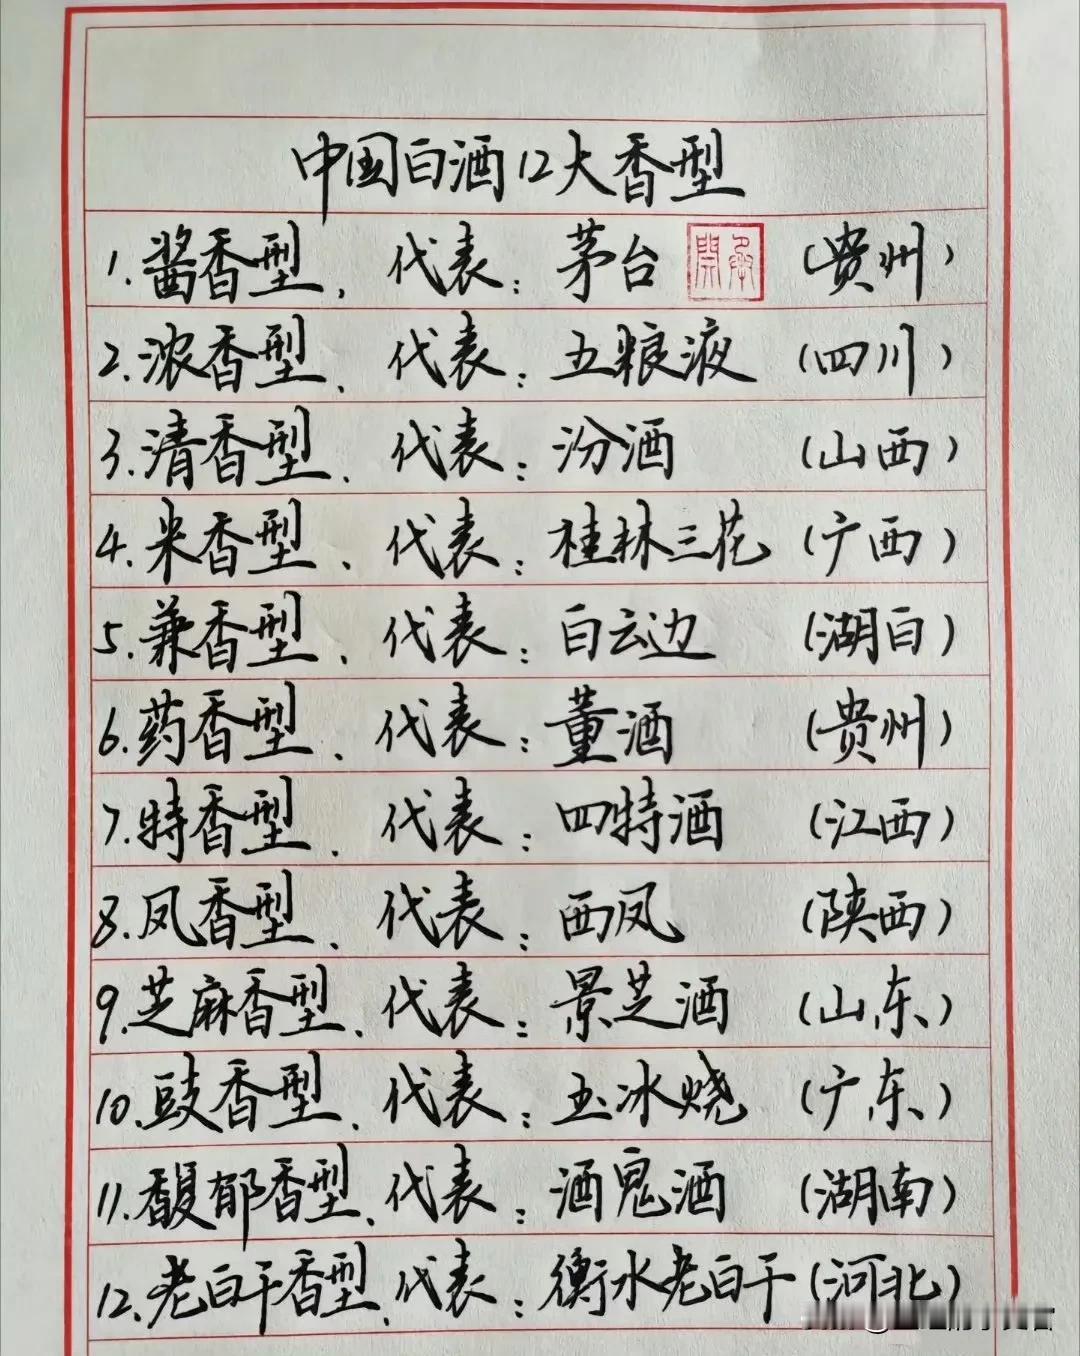 中国白酒12大香型
1.酱香型、代表：茅台（贵州）
2.浓香型、代表：五粮液（四川）
3.清香型、代表：汾酒（山西）
4.米香型、代表：桂林三花（广西）
5.兼香型、代表：白云边（湖白）
6.药香型、代表：董酒（贵州）
7.特香型、代表：四特酒（江西）
8.凤香型、代表：西凤（陕西）
9.芝麻香型、代表：景芝酒（山东）
10.豉香型、代表：玉冰烧（广东）
11.馥郁香型、代表：酒鬼酒（湖南）
12.老白干香型、代表：衡水老白干（河北）